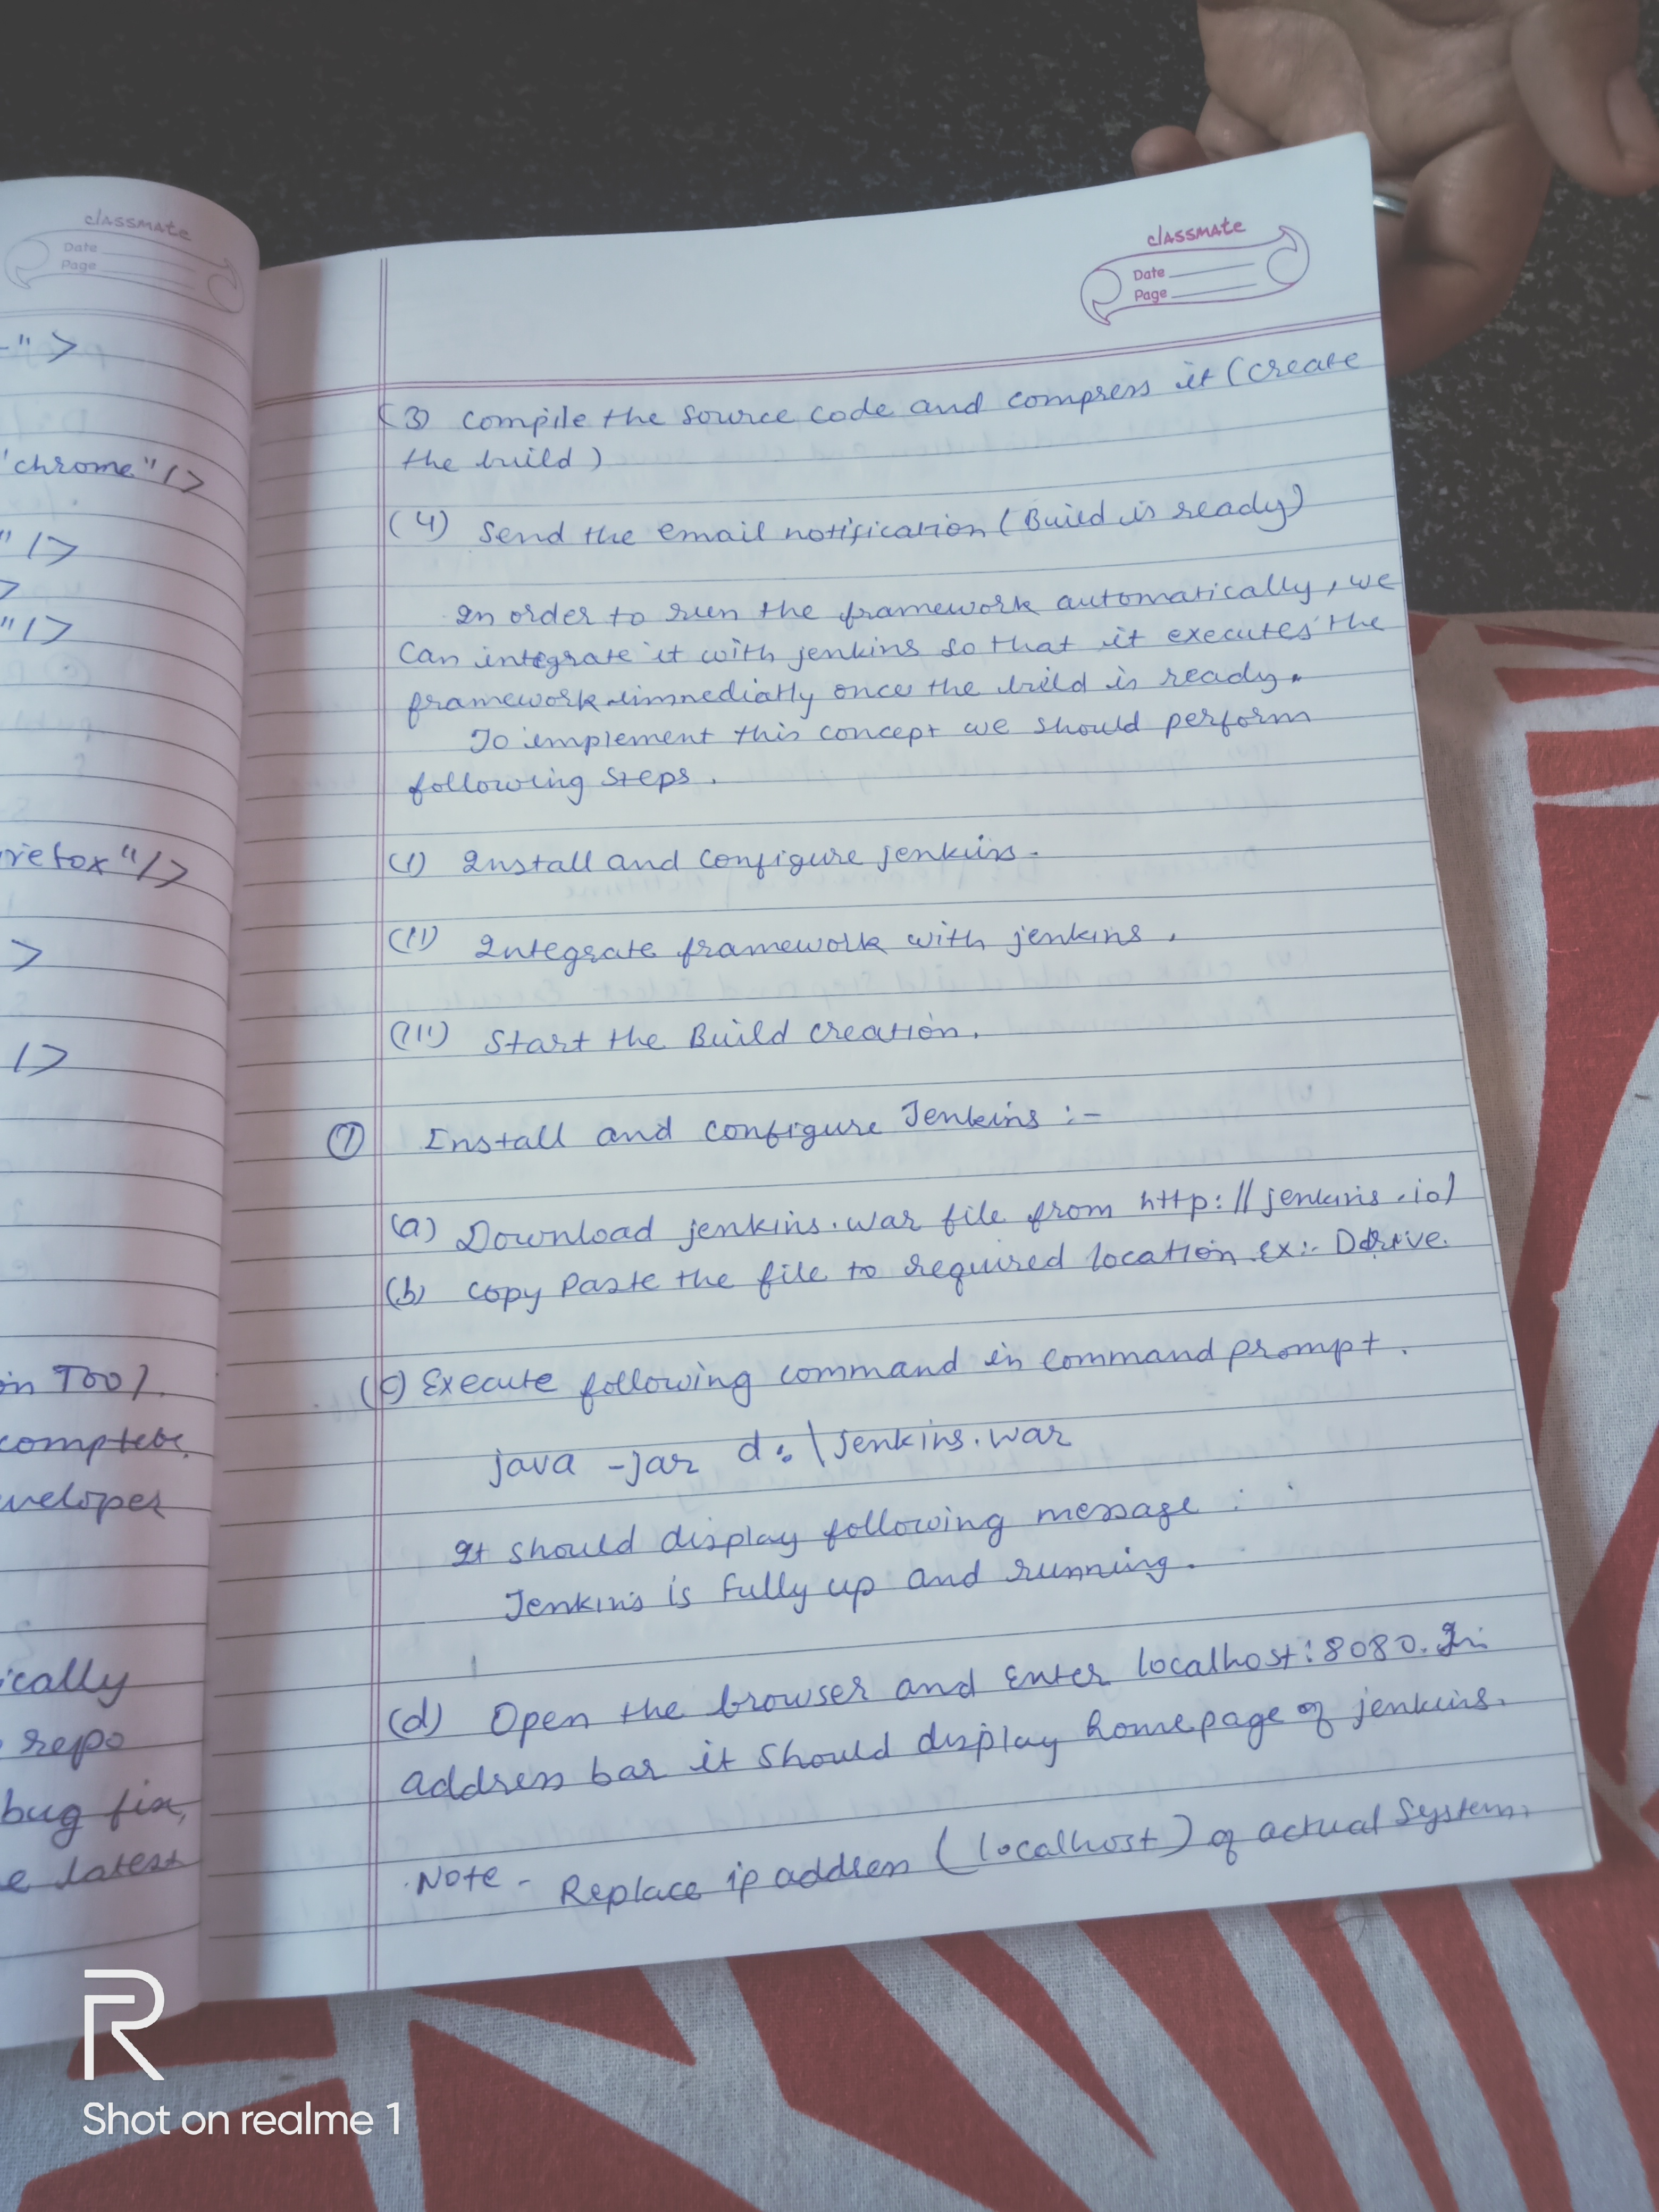 classmate
Date
Page
-" >
"chrome" />
" />
>
" />
refox" />
>
/>
on Tool.
complete
veloper
ically
repo
bug fix,
e latest
classmate
Date
Page
(3) Compile the source code and compress it (create
the build)
(4) Send the email notification (Build is ready)
In order to run the framework automatically, we
Can integrate it with jenkins so that it executes the
framework immediatly once the build is ready.
To implement this concept we should perform
following steps.
(I) Install and configure jenkins.
(II) Integrate framework with jenkins.
(III) Start the Build creation.
① Install and configure Jenkins :-
(a) Download jenkins.war file from http://jenkins.io/
(b) Copy Paste the file to required location ex:- D drive.
(c) Execute following command in command prompt.
java -jar d:\jenkins.war
It should display following message :
Jenkins is fully up and running.
(d) Open the browser and Enter localhost:8080. In
address bar it should display homepage of jenkins.
Note - Replace ip address (localhost) of actual system.
R
Shot on realme 1